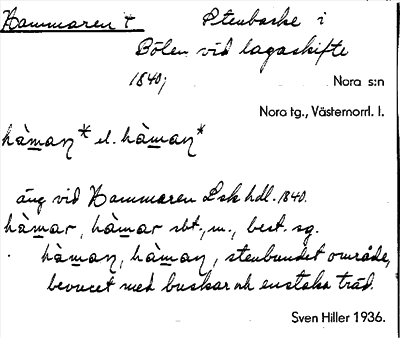 Hammaren † Stenbacke i
Bölen vid lagaskifte
1840; Nora s:n
Nora tg., Västernorrl. l.
hàman* el. hàman*
äng vid Hammaren Lsk hdl. 1840.
hàmar, hàmar sbt., m., best. sg.
hàman, hàman, stenbundet område,
bevuxet med buskar och enstaka träd.
Sven Hiller 1936.